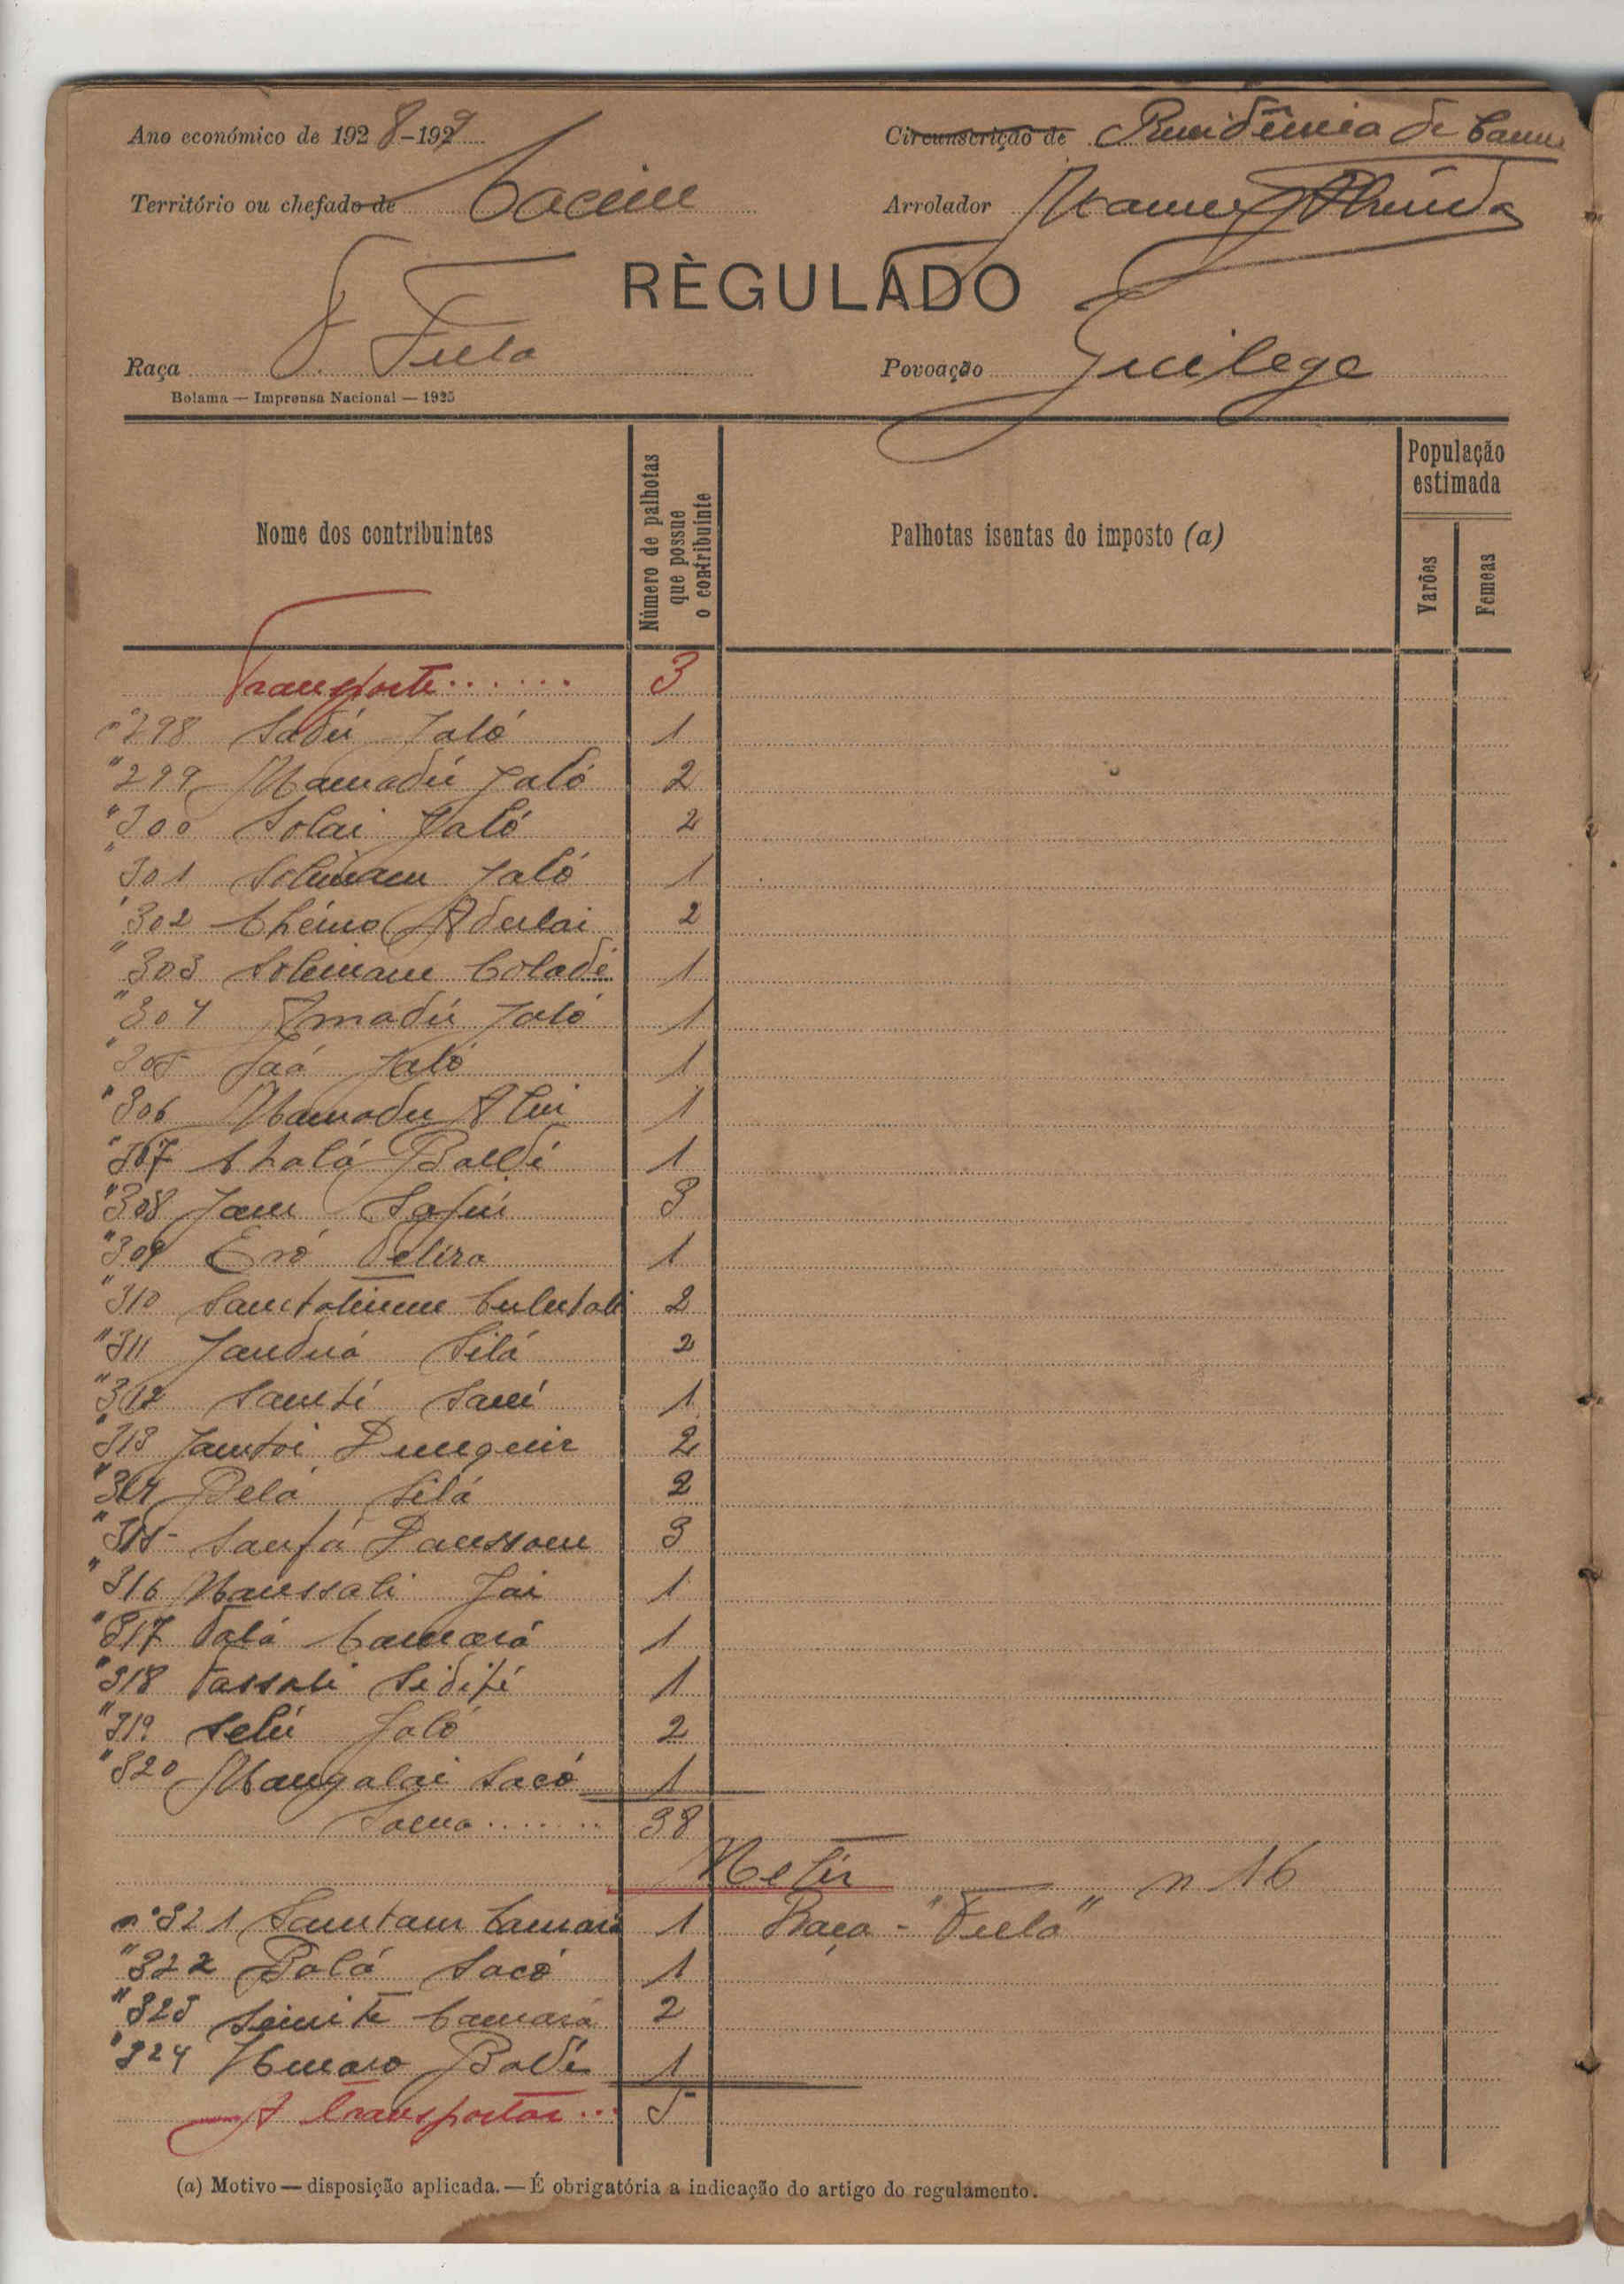 Ano económico de 1928-1929 Circunscrição de Residência de
Território ou chefado de Cacine Arrolador Manuel Almeida
RÈGULADO
Raça F. Fula Povoação Guilege
Bolama — Imprensa Nacional — 1925
Nome dos contribuintes Número de palhotas que possue o contribuinte Palhotas isentas do imposto (a) População estimada Varões Femeas
Transporte....... 3
nº 298 Sadú Jaló 1
" 299 Mamadú Jaló 2
" 300 Solai Jaló 2
" 301 Solimam Jaló 1
" 302 Chérno Adulai 2
" 303 Solimane Coladé 1
" 304 Amadú Jaló 1
" 305 Jaó Jaló 1
" 306 Mamadu Alui 1
" 307 Baldé 1
" 308 Jam 3
" 309 Eró 1
" 310 2
" 311 Janduá Silá 2
" 312 Sambú Sané 1
" 313 2
" 314 Belá Silá 2
" 315 Sanfá Danssom 3
" 316 Manssali Jai 1
" 317 Talá Camará 1
" 318 Tassali Sidibé 1
" 319 Selú Jaló 2
" 320 Mangalai Sacó 1
Soma....... 38
n 16
nº 321 Camará 1 Raça - "Fula"
" 322 Balá Sacó 1
" 323 Camará 2
" 324 Umaro Baldé 1
A transportar... 5
(a) Motivo — disposição aplicada. — É obrigatória a indicação do artigo do regulamento.